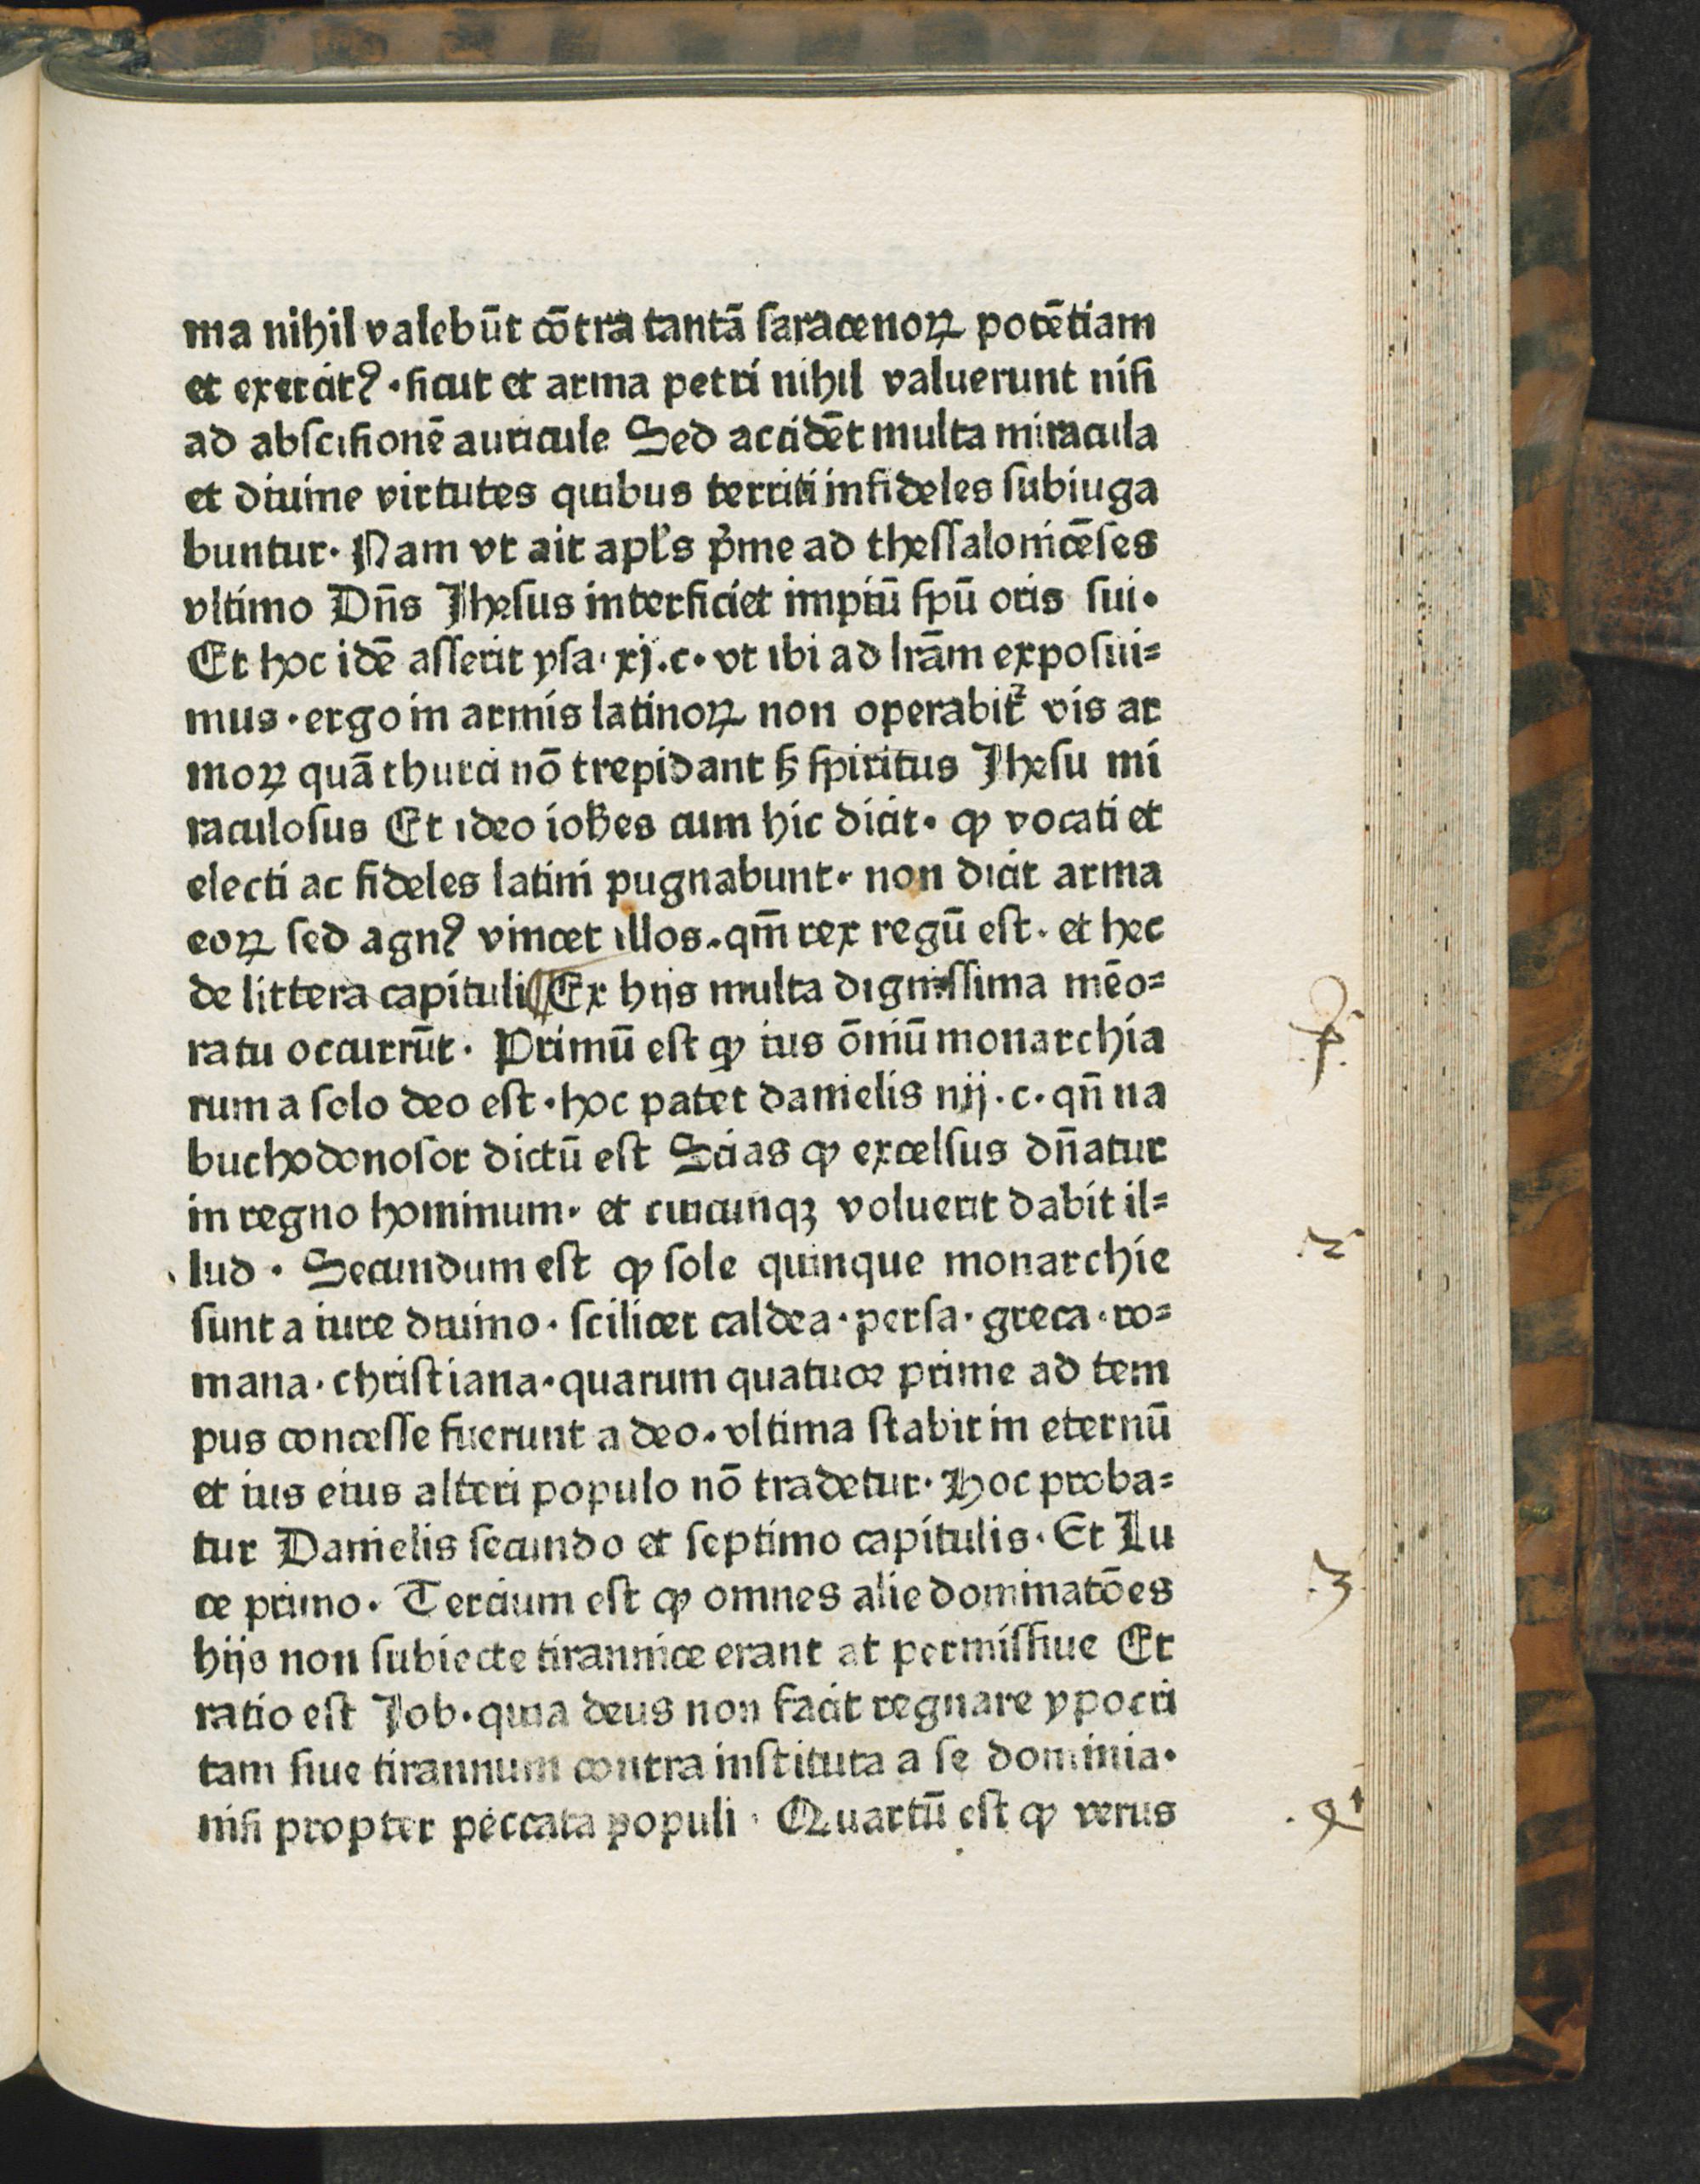 ma nihil valebūt cōtra tantā ſaracenoꝝ potētiam
et exercitꝰ · ſicut et arma petri nihil valuerunt niſi
ad abſciſionē auricule Sed accidēt multa miracula
et diuine virtutes quibus territi infideles ſubiuga
buntur· Nam vt ait apl's p̄me ad theſſalonicēſes
vltimo Dn̄s Jheſus interficiet impiū ſpū oris ſui·
Et hoc idē aſſerit yſa· xj.c· vt ibi ad lr̄am expoſui⸗
mus · ergo in armis latinoꝝ non operabit᷑ vis ar
moꝝ quā thurci nō trepidant ſꝫ ſpiritus Jheſu mi
raculoſus Et ideo ioh̄es cum hic dicit· ꝙ vocati et
electi ac fideles latini pugnabunt· non dicit arma
eoꝝ ſed agnꝰ vincet illos·qm̄ rex regū eſt· et hec
de littera capituli ¶ Ex hijs multa digniſſima mēo⸗
ratu occurrūt· Primū eſt ꝙ ius ōniū monarchia
rum a ſolo deo eſt·hoc patet danielis iiij·c·qn̄ na
buchodonoſor dictū eſt Scias ꝙ excelſus dn̄atur
in regno hominum· et cuicunqꝫ voluerit dabit il⸗
lud · Secundum eſt ꝙ ſole quinque monarchie
ſunt a iure diuino· ſcilicet caldea·perſa·greca·ro⸗
mana·chriſtiana·quarum quatuor prime ad tem
pus conceſſe fuerunt a deo·vltima ſtabit in eternū
et ius eius alteri populo nō tradetur·Hoc proba⸗
tur Danielis ſecundo et ſeptimo capitulis·Et Lu
ce primo· Tercium eſt ꝙ omnes alie dominatōes
hijs non ſubiecte tirannice erant at permiſſiue Et
ratio eſt Job·quia deus non facit regnare ypocri
tam ſiue tirannum contra inſtituta a ſe dominia·
niſi propter peccata populi· Quartū eſt ꝙ verus
·2·
·3·